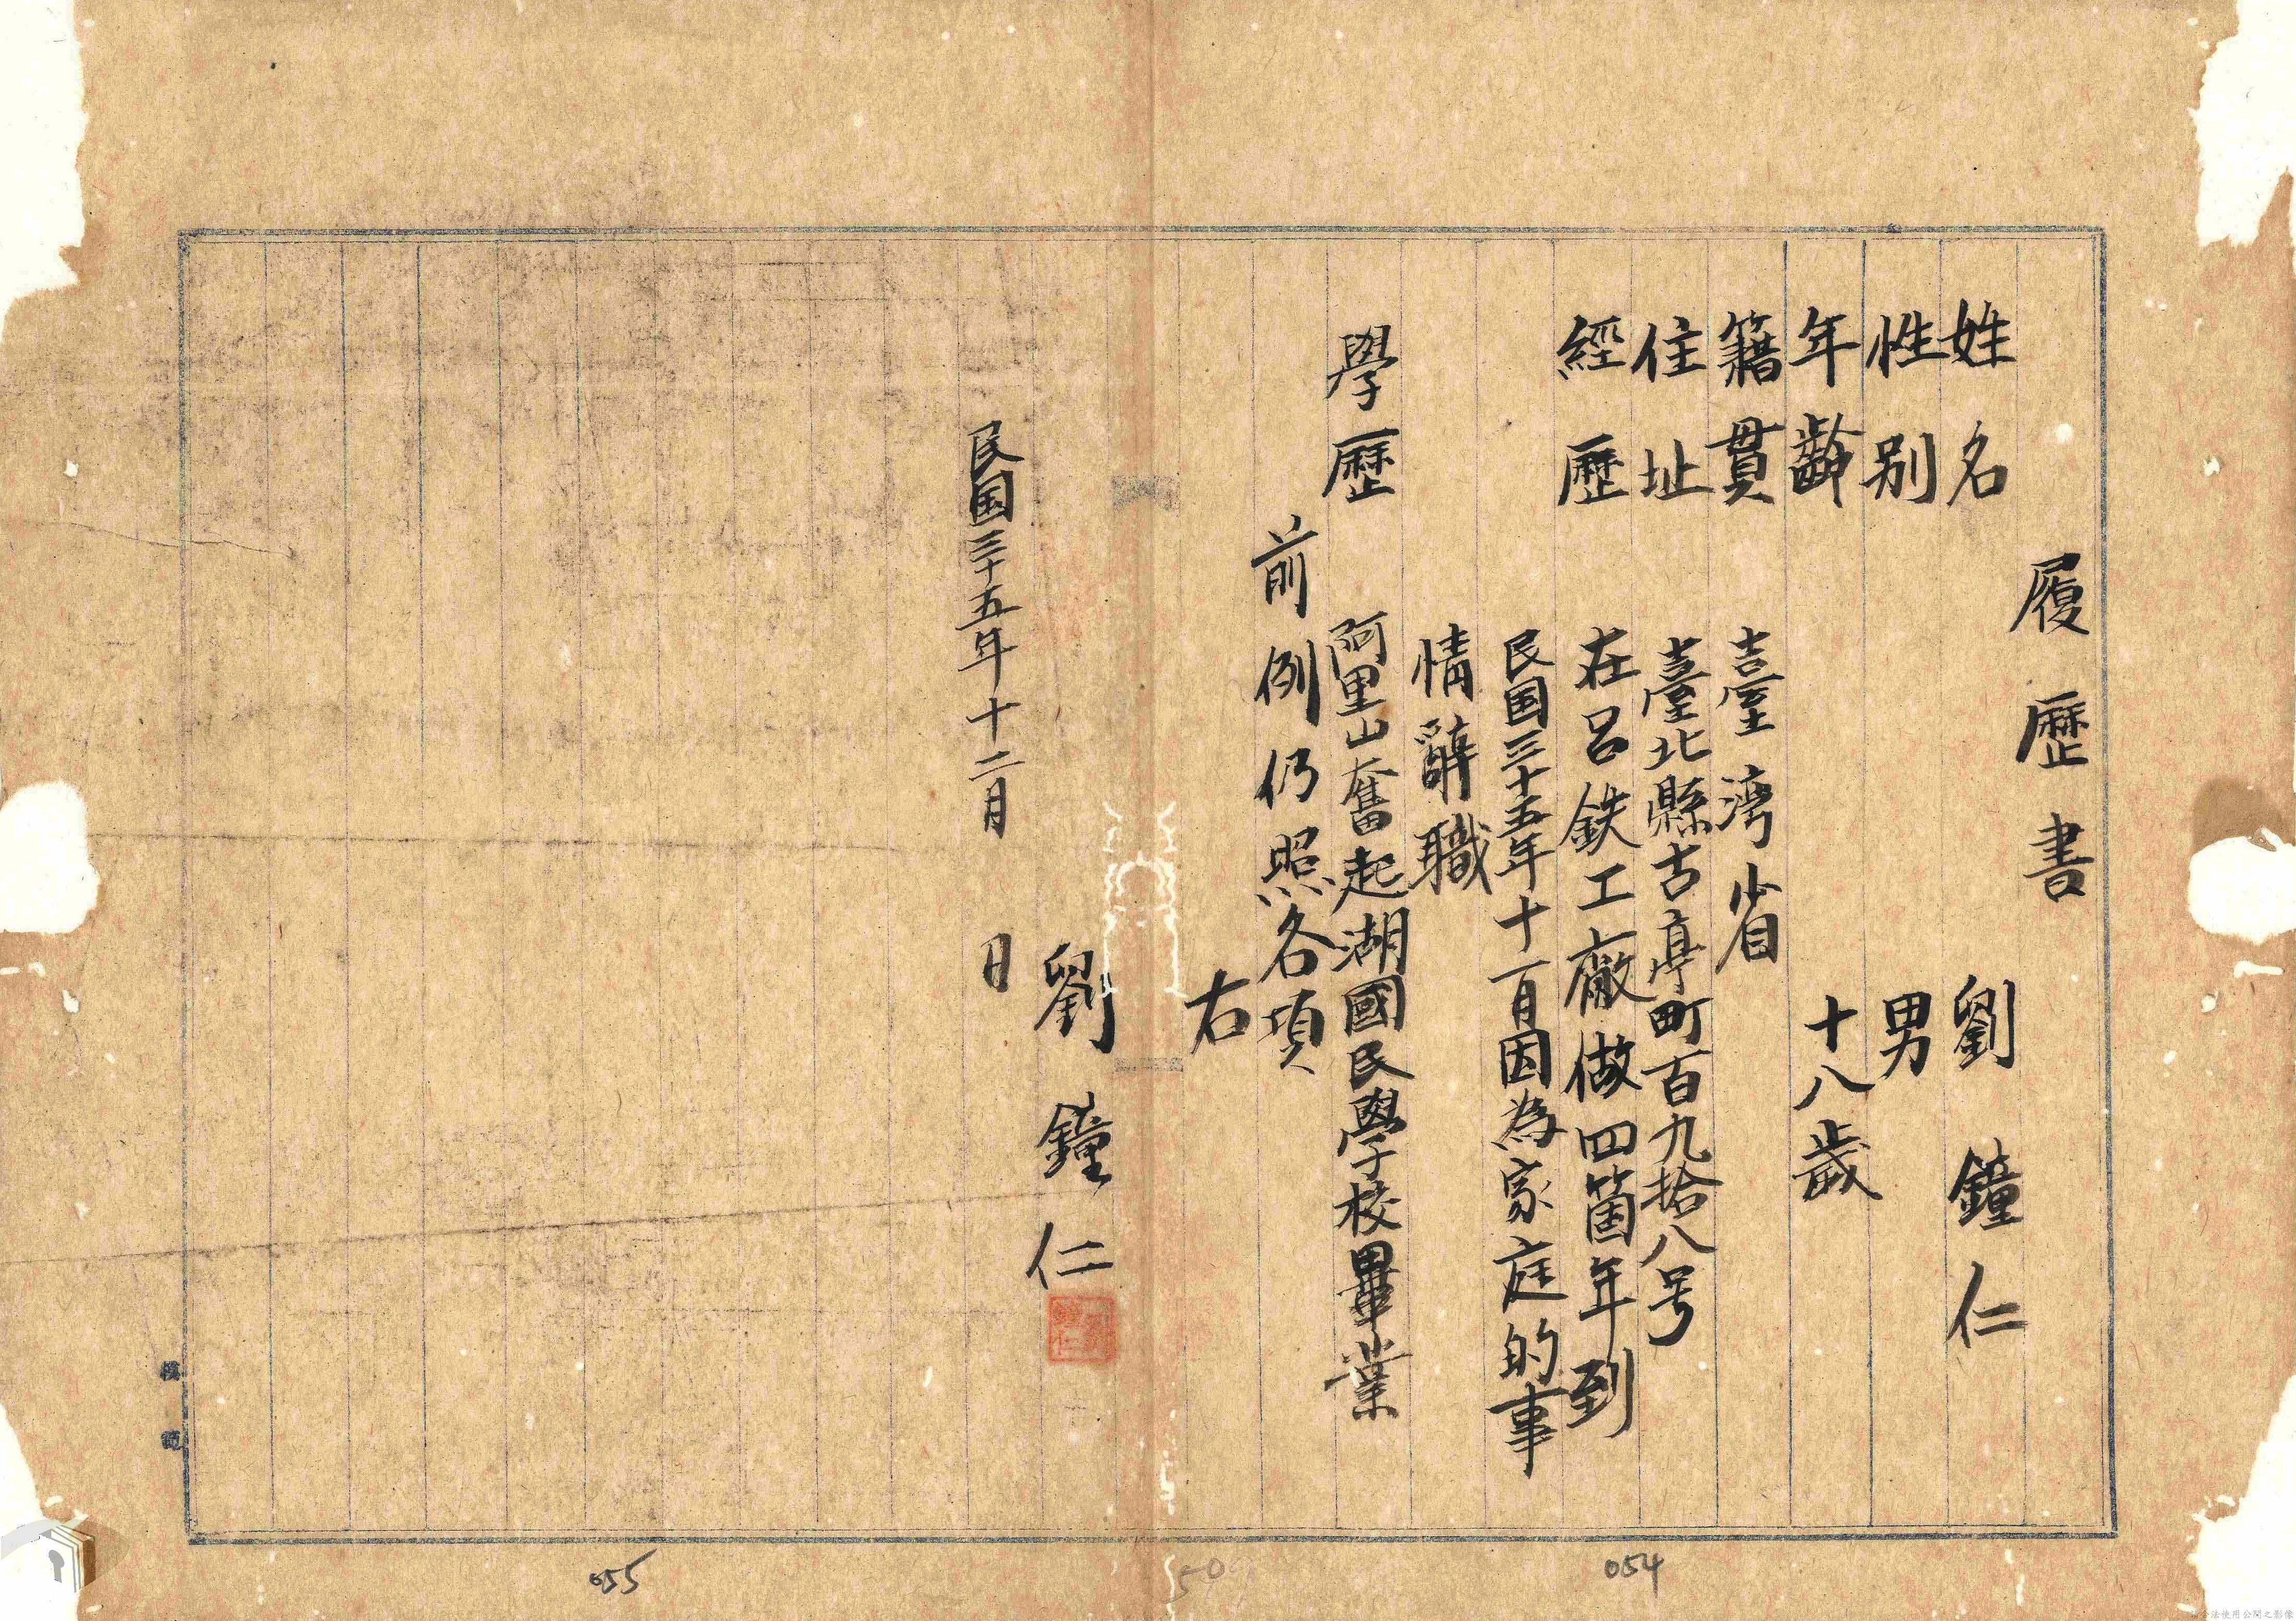 履歷書
姓名 劉鐘仁
性别 男
年齡 十八歲
籍貫 臺灣省
住址 臺北縣古亭町百九拾八号
經歷 在呂鉄工廠做四箇年到
民国三十五年十一月因為家庭的事
情辭職
學歷 阿里山奮起湖國民學校畢業
前例仍照各項
右
劉鐘仁
民国三十五年十二月 日
054
50
055